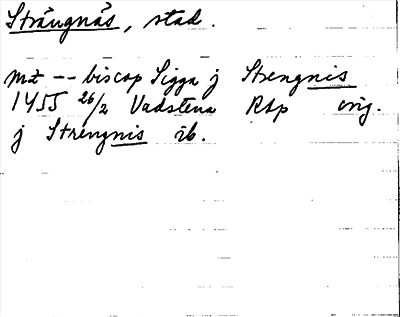 Strängnäs, stad.
mz -- biscop Sigga j Strengnis
1455 26/2 Vadstena RAp orig.
j Strengnis ib.